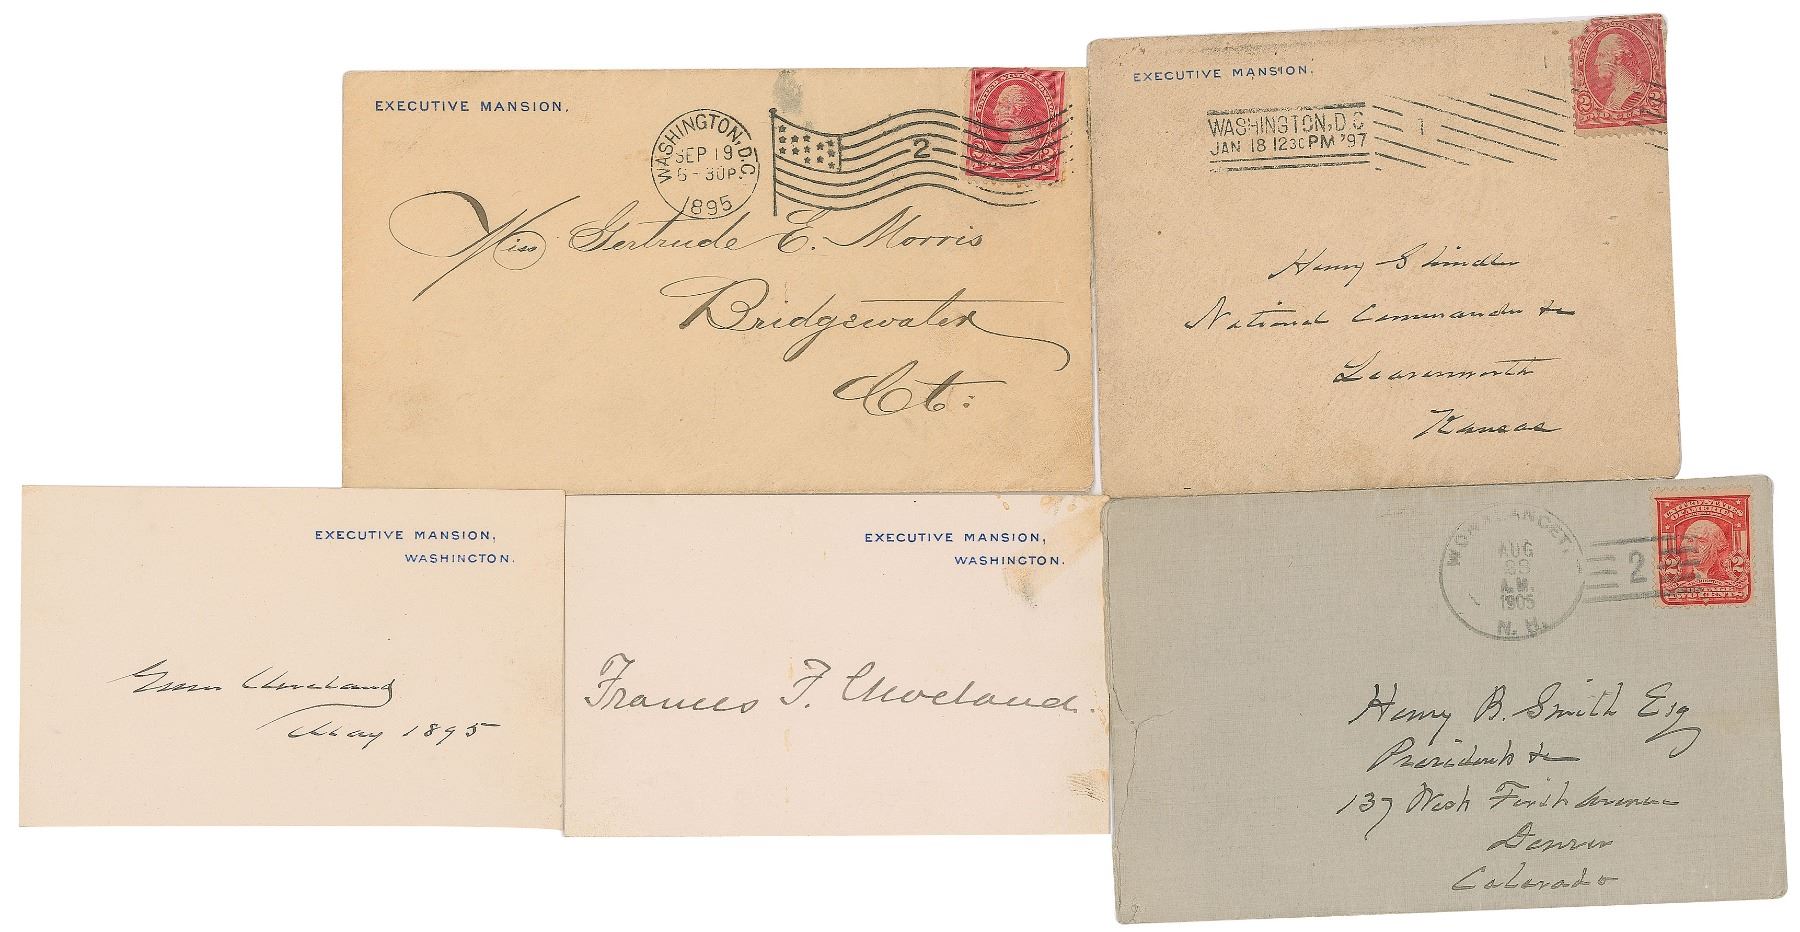 EXECUTIVE MANSION.
WASHINGTON, D.C.
SEP 19
6-30P
1895
2
Miss Gertrude E. Morris
Bridgewater
Ct.
EXECUTIVE MANSION.
WASHINGTON, D.C.
JAN 18 1230PM '97
1
Henry Shindler
National Commander &c
Leavenworth
Kansas
EXECUTIVE MANSION,
WASHINGTON.
Grover Cleveland
May 1895
EXECUTIVE MANSION,
WASHINGTON.
Frances F. Cleveland.
WONALANCET,
AUG
A.M.
1905
N. H.
2
Henry B. Smith Esq
President &c
137 West First Avenue
Denver
Colorado